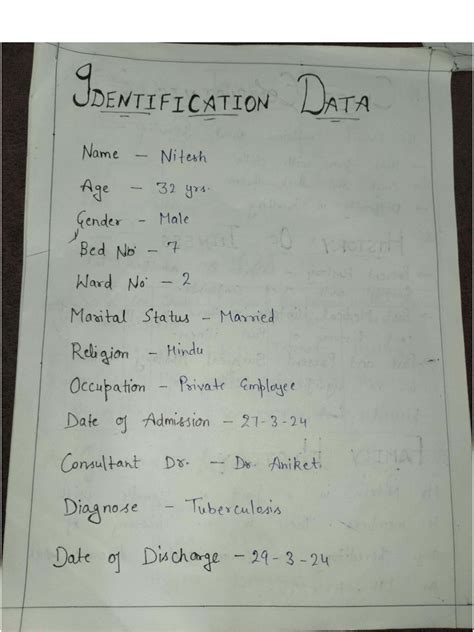 IDENTIFICATION DATA
Name - Nitesh
Age - 32 yrs.
Gender - Male
Bed No - 7
Ward No - 2
Marital Status - Married
Religion - Hindu
Occupation - Private Employee
Date of Admission - 27-3-24
Consultant Dr. - Dr. Aniket
Diagnose - Tuberculosis
Date of Discharge - 29-3-24